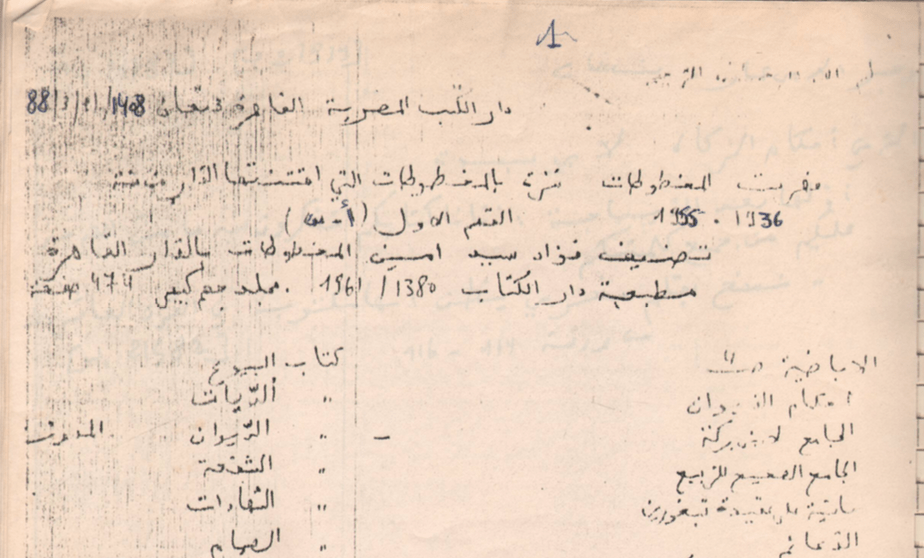 1
بسم الله الرحمن الرحيم
دار الكتب المصرية القاهرة 3 شعبان 1408 / 21 / 3 / 88
فهرست المخطوطات نشرة بالمخطوطات التي اقتنتها الدار من سنة
1936 - 1955 القسم الاول (أ - س)
تصنيف فؤاد سيد امين المخطوطات بالدار القاهرة
مطبعة دار الكتاب 1380 / 1961 . مجلد حجم كبير 474 صفحة
الاباضية كتاب البيوع
احكام الديوان " الديات
الجامع لابن بركة - " الديوان
الجامع الصحيح للربيع " الشفعة
حاشية على عقيدة تبغورين " الشهادات
الدعائم " الصيام